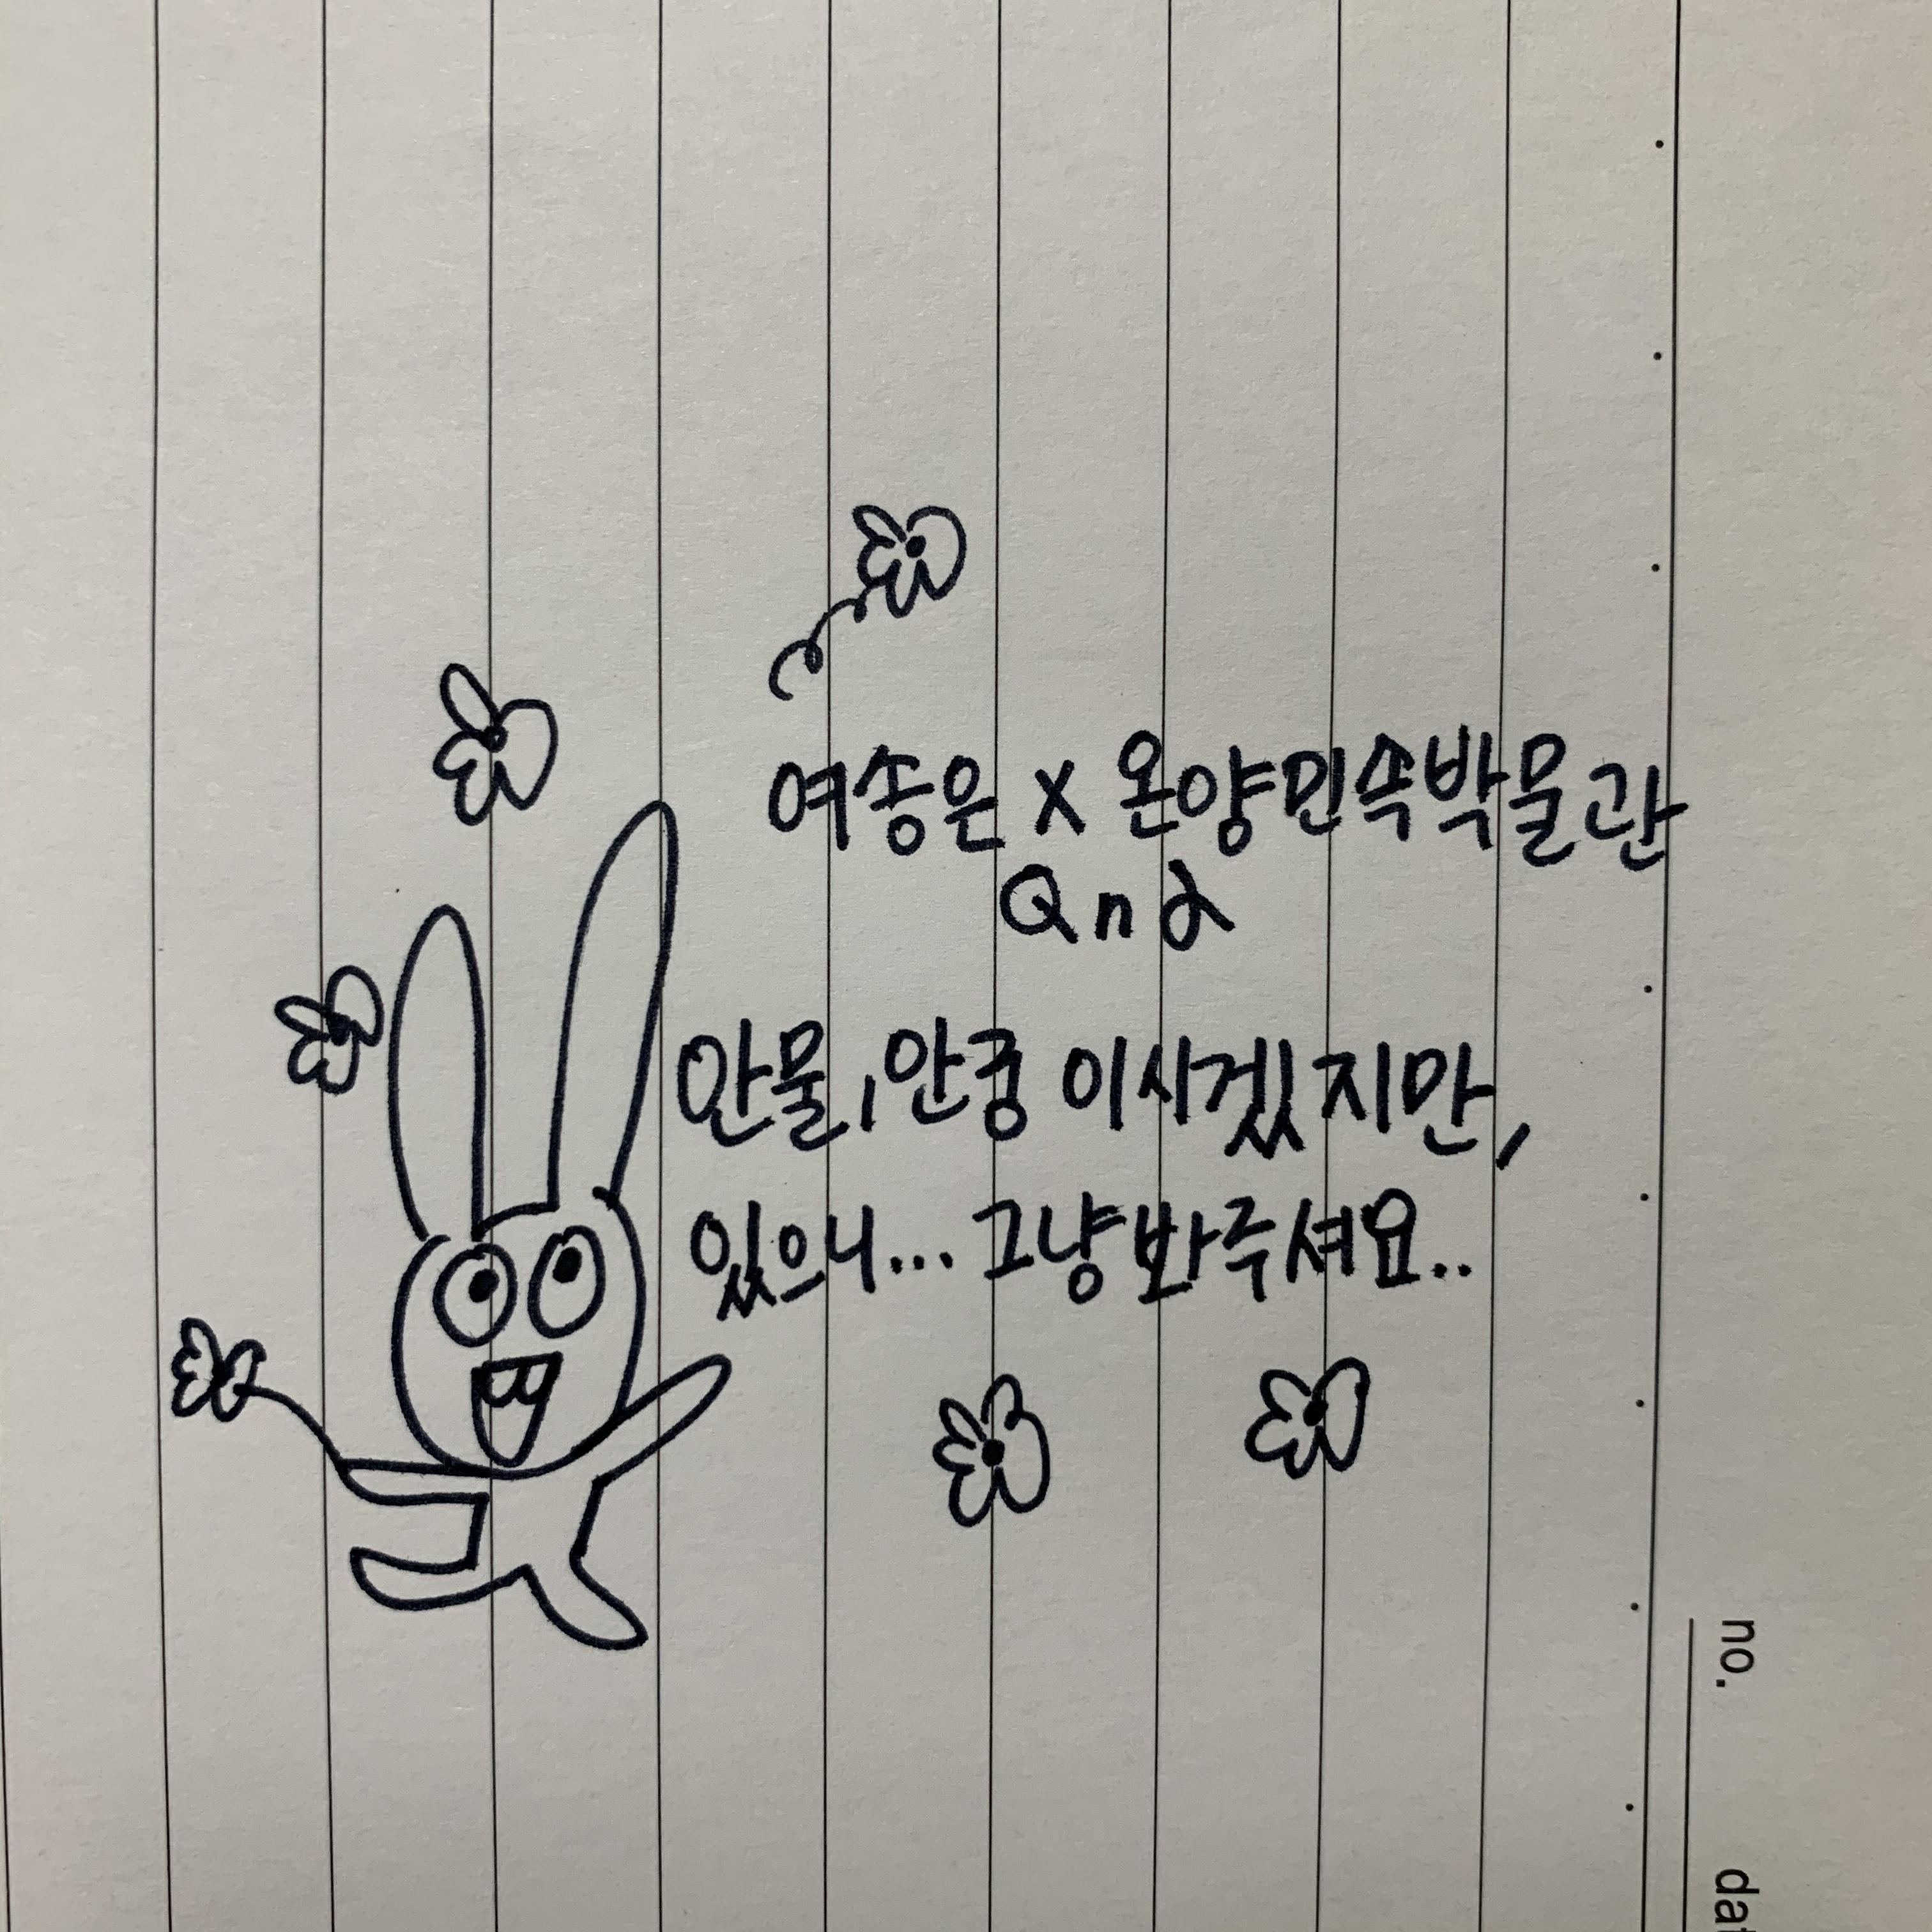 여송은 x 온양민속박물관
Q n a
안물, 안궁 이시겠지만,
있으니... 그냥 봐주셔요..
no.